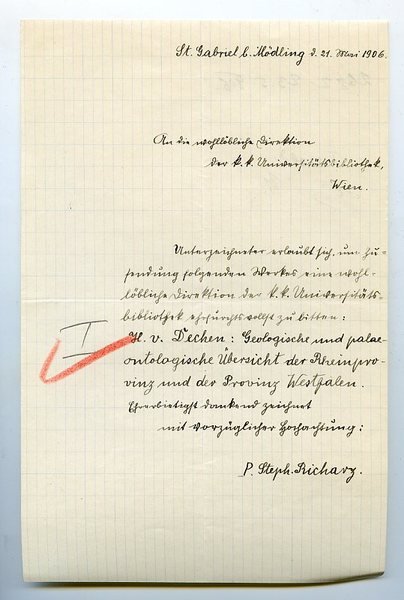 St. Gabriel b. Mödling d. 21. Mai 1906.
An die wohllöbliche Direktion
der k. k. Universitätsbibliothek,
Wien.
Unterzeichneter erlaubt sich, um Zu-
sendung folgenden Werkes eine wohl-
löbliche Direktion der k. k. Universitäts-
bibliothek ehrfurchtsvollst zu bitten:
I
H. v. Dechen: Geologische und palae-
ontologische Übersicht der Rheinpro-
vinz und der Provinz Westfalen.
Ehrerbietigst dankend zeichnet
mit vorzüglicher Hochachtung:
P. Steph. Richarz.